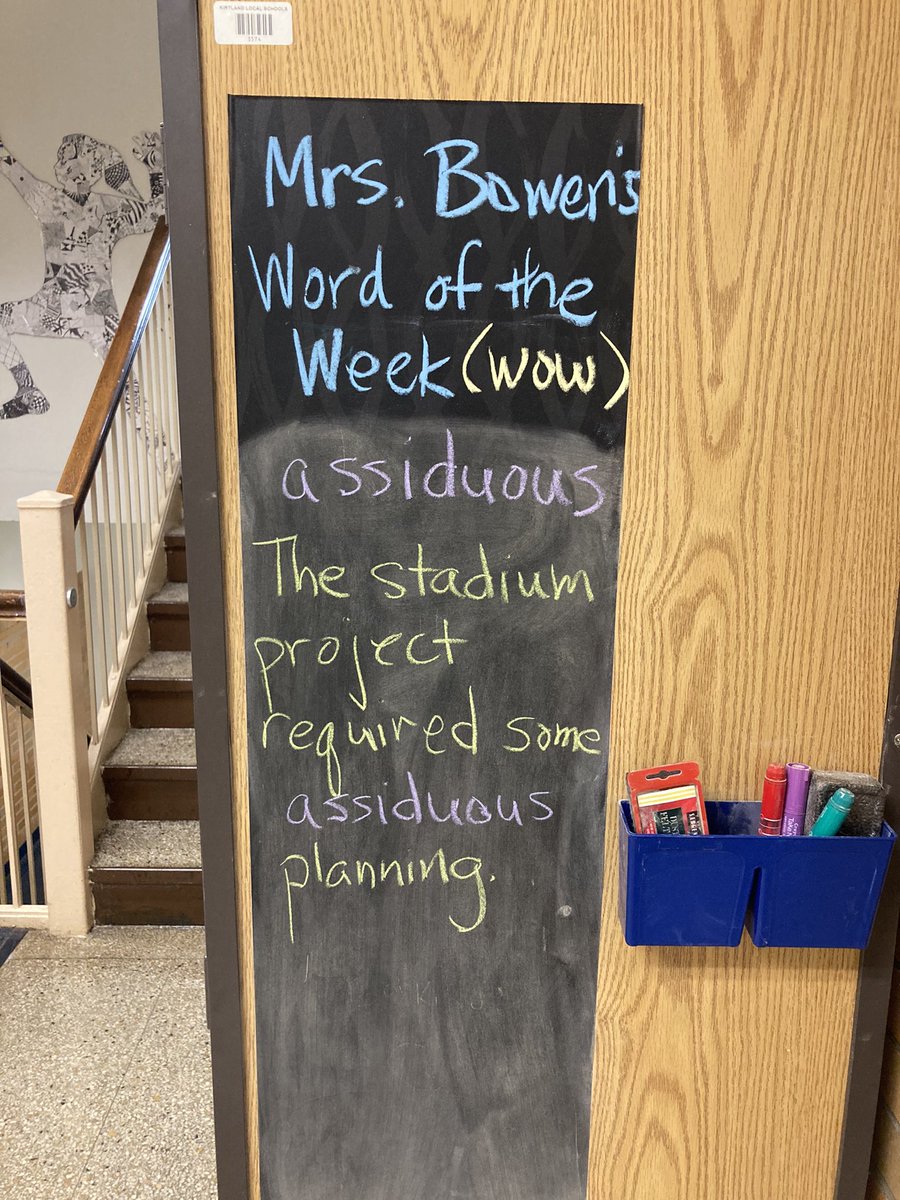 KIRTLAND LOCAL SCHOOLS
3574
Mrs. Bowen's
Word of the
Week (WOW)
assiduous
The stadium
project
required some
assiduous
planning.